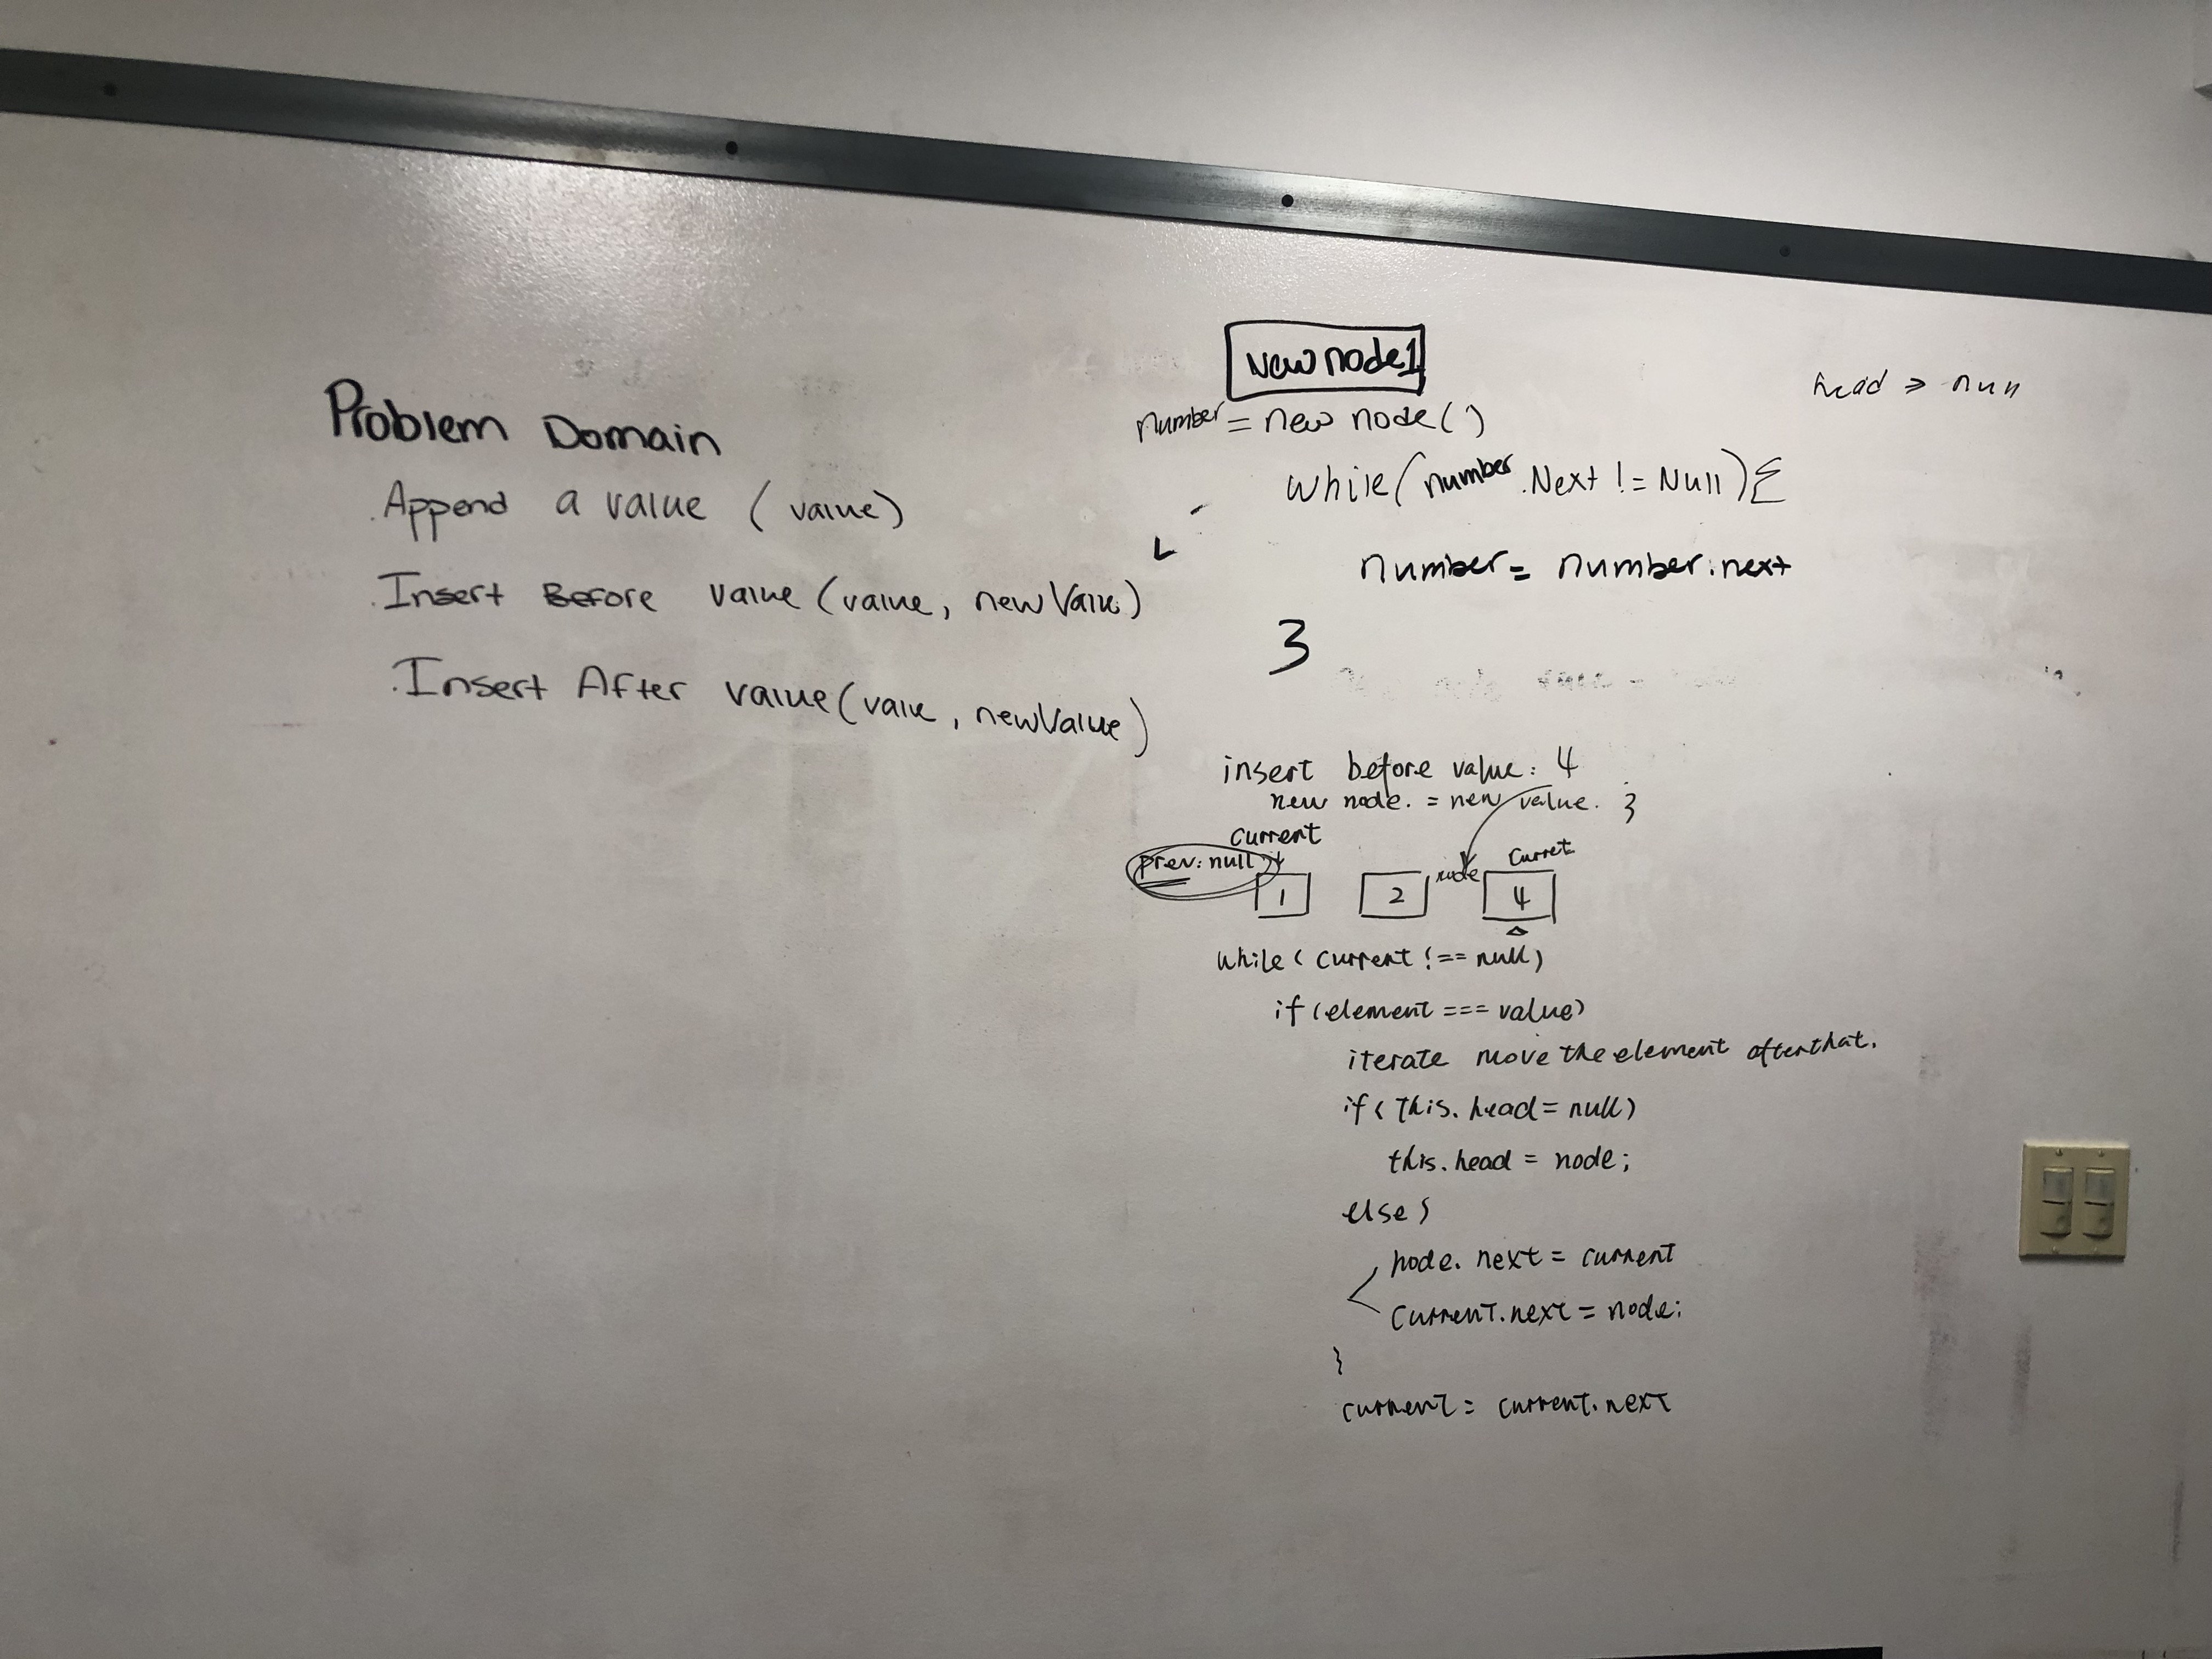 Problem Domain
. Append a value (value)
. Insert Before value (value, newValue)
. Insert After value (value, newValue)
New node1
number = new node()
while(number.Next != Null){
number = number.next
}
head => null
insert before value: 4
new node. = new value. }
current
prev: null
1 2 node 4
Curret
while (current !== null)
if (element === value)
iterate move the element after that.
if (this.head = null)
this.head = node;
else {
node.next = current
current.next = node;
}
current = current.next